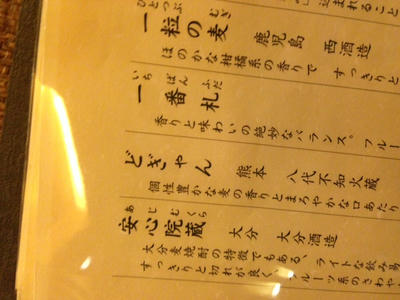 まれること
ひとつぶ むぎ
一粒の麦 鹿児島 西酒造
ほのかな柑橘系の香りで すっきりと
いち ばん ふだ
一番札
香りと味わいの絶妙なバランス。フルー
どぎゃん 熊本 八代不知火蔵
個性豊かな麦の香りとまろやかな口あたり
あ じ む くら
安心院蔵 大分 大分酒造
大分麦焼酎の特徴でもある、ライトな飲み易
すっきりと切れが良く、フルーツ系のさわや